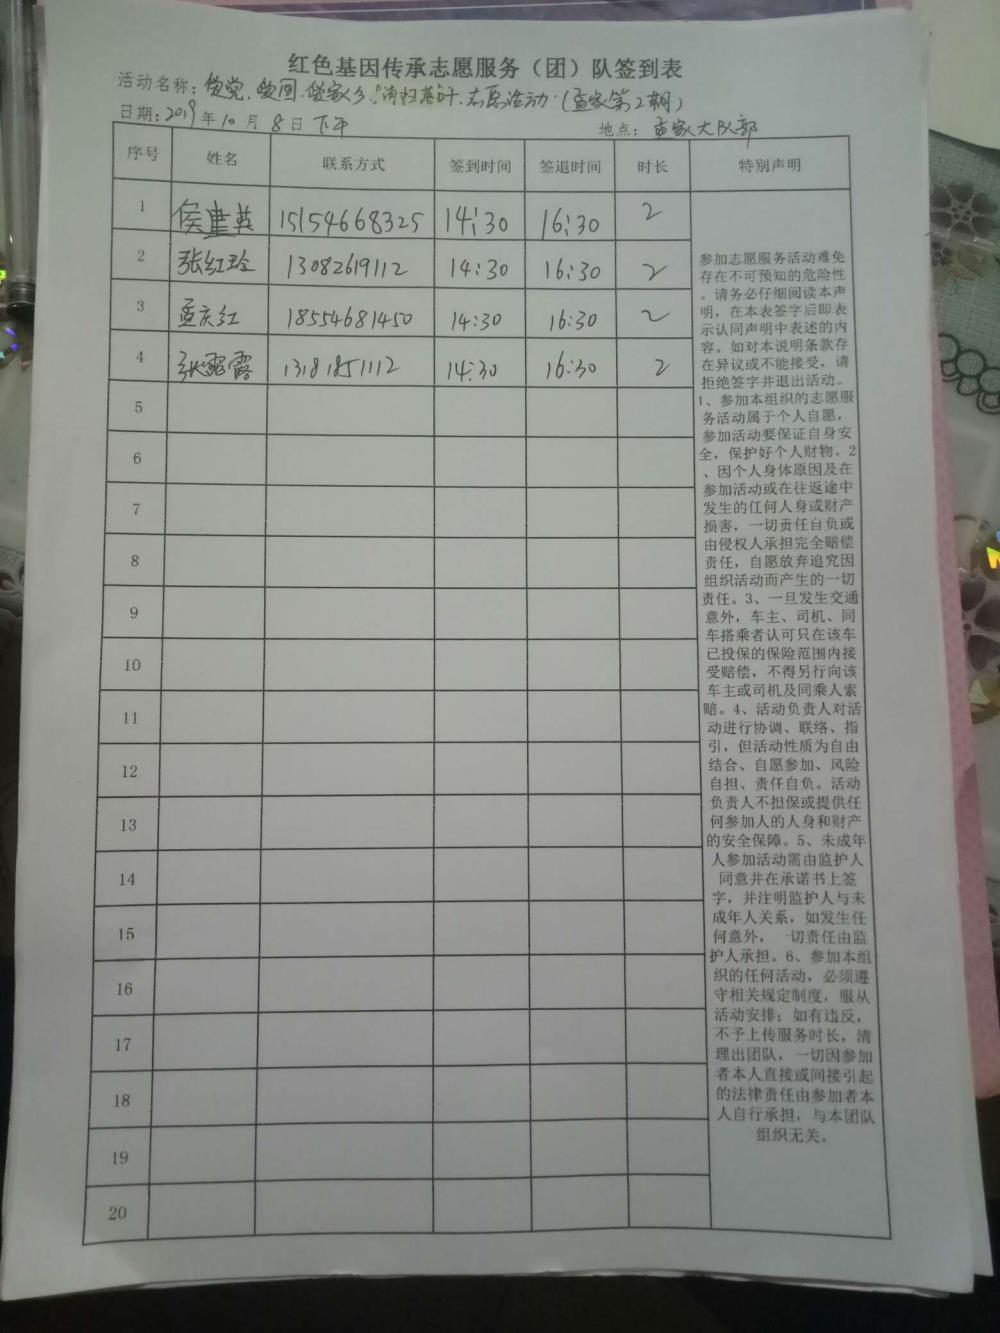 红色基因传承志愿服务（团）队签到表
活动名称：爱党.爱国.爱家乡."清扫落叶.志愿活动.(孟家第2期)
日期：2019年10月8日下午 地点：孟家大队部
序号 姓名 联系方式 签到时间 签退时间 时长 特别声明
1 侯建英 15154668325 14:30 16:30 2
2 张红玲 13082619112 14:30 16:30 2
3 孟庆红 18554681450 14:30 16:30 2
4 张露 13181851112 14:30 16:30 2
5
6
7
8
9
10
11
12
13
14
15
16
17
18
19
20
参加志愿服务活动难免
存在不可预知的危险性
。请务必仔细阅读本声
明，在本表签字后即表
示认同声明中表述的内
容。如对本说明条款存
在异议或不能接受，请
拒绝签字并退出活动。
1、参加本组织的志愿服
务活动属于个人自愿，
参加活动要保证自身安
全，保护好个人财物。2
、因个人身体原因及在
参加活动或在往返途中
发生的任何人身或财产
损害，一切责任自负或
由侵权人承担完全赔偿
责任，自愿放弃追究因
组织活动而产生的一切
责任。3、一旦发生交通
意外，车主、司机、同
车搭乘者认可只在该车
已投保的保险范围内接
受赔偿，不得另行向该
车主或司机及同乘人索
赔。4、活动负责人对活
动进行协调、联络、指
引，但活动性质为自由
结合、自愿参加、风险
自担、责任自负。活动
负责人不担保或提供任
何参加人的人身和财产
的安全保障。5、未成年
人参加活动需由监护人
同意并在承诺书上签
字，并注明监护人与未
成年人关系，如发生任
何意外，一切责任由监
护人承担。6、参加本组
织的任何活动，必须遵
守相关规定制度，服从
活动安排；如有违反，
不予上传服务时长，清
理出团队，一切因参加
者本人直接或间接引起
的法律责任由参加者本
人自行承担，与本团队
组织无关。